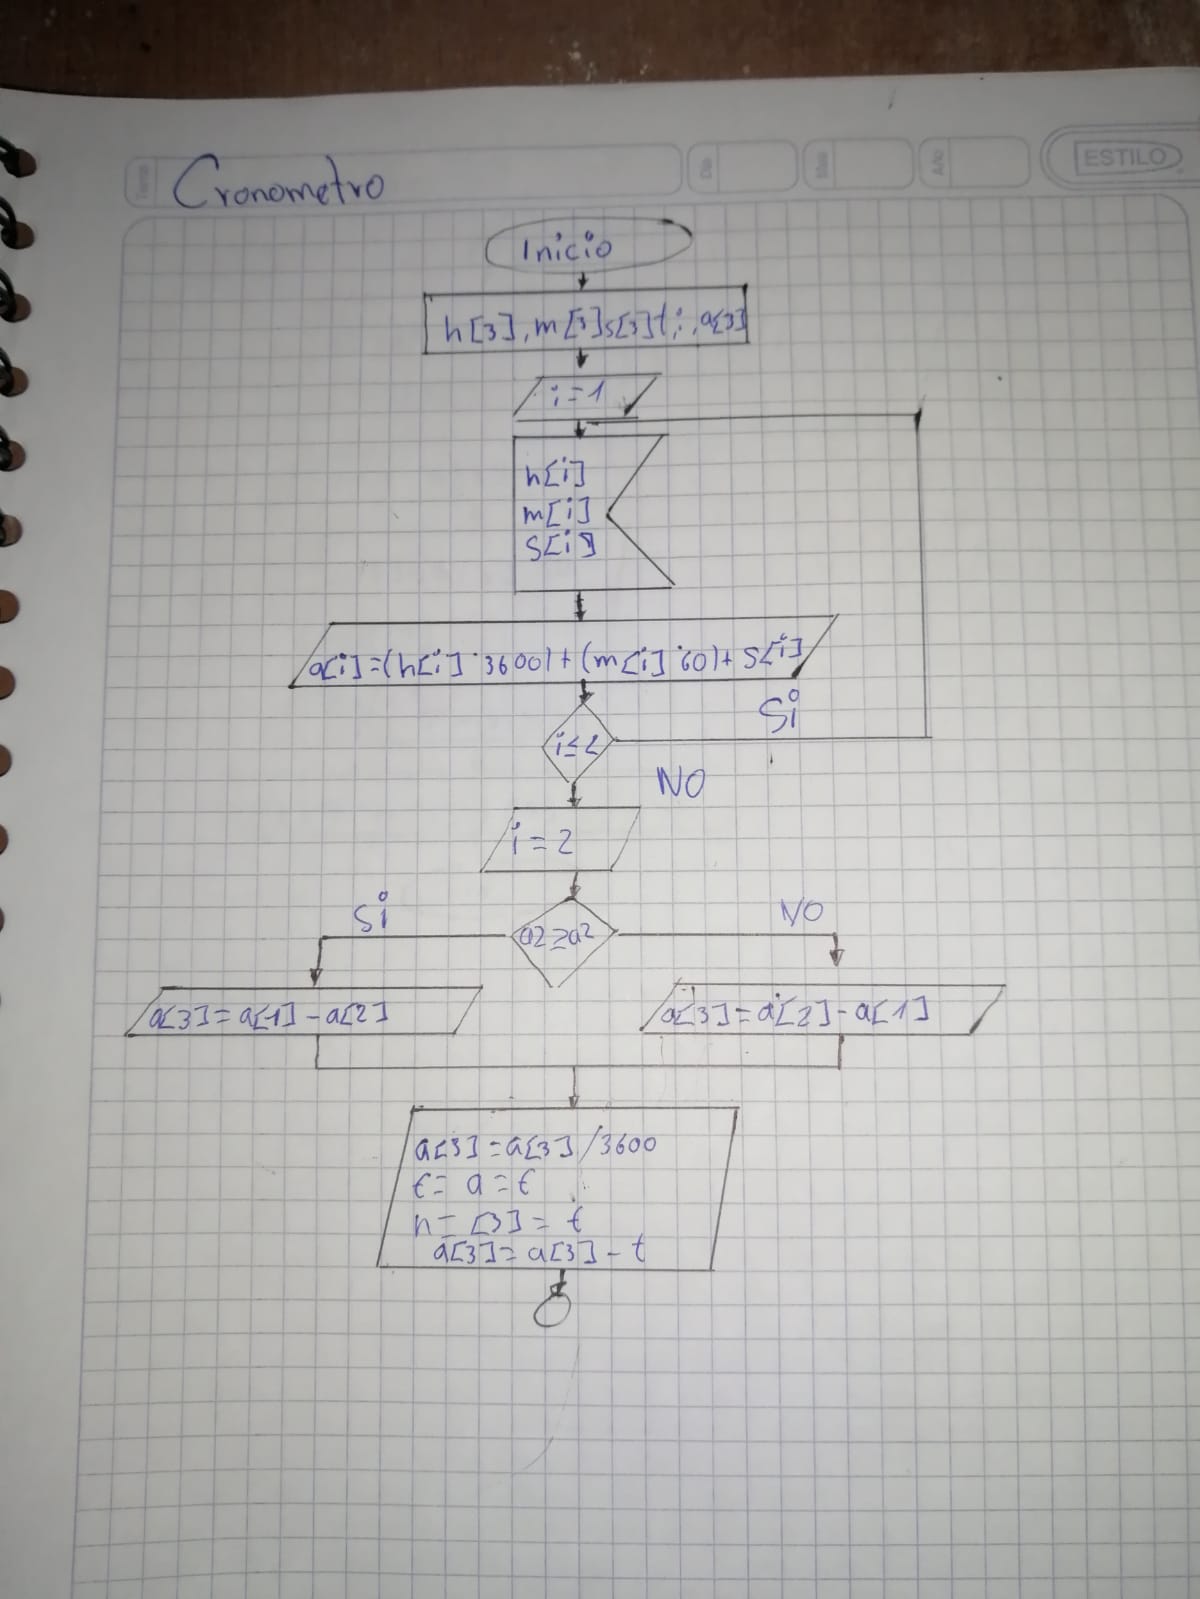 Tema
Cronometro
Día
Mes
Año
ESTILO
Inicio
h[3], m[3]s[3]t, i, a[3]
i=1
h[i]
m[i]
S[i]
a[i]=(h[i].3600)+(m[i].60)+S[i]
Si
i≤2
NO
i=2
Si
NO
a2≥a2
a[3]=a[1]-a[2]
a[3]=a[2]-a[1]
a[3]=a[3]/3600
t= a=t
h= [3]= t
a[3]=a[3]-t